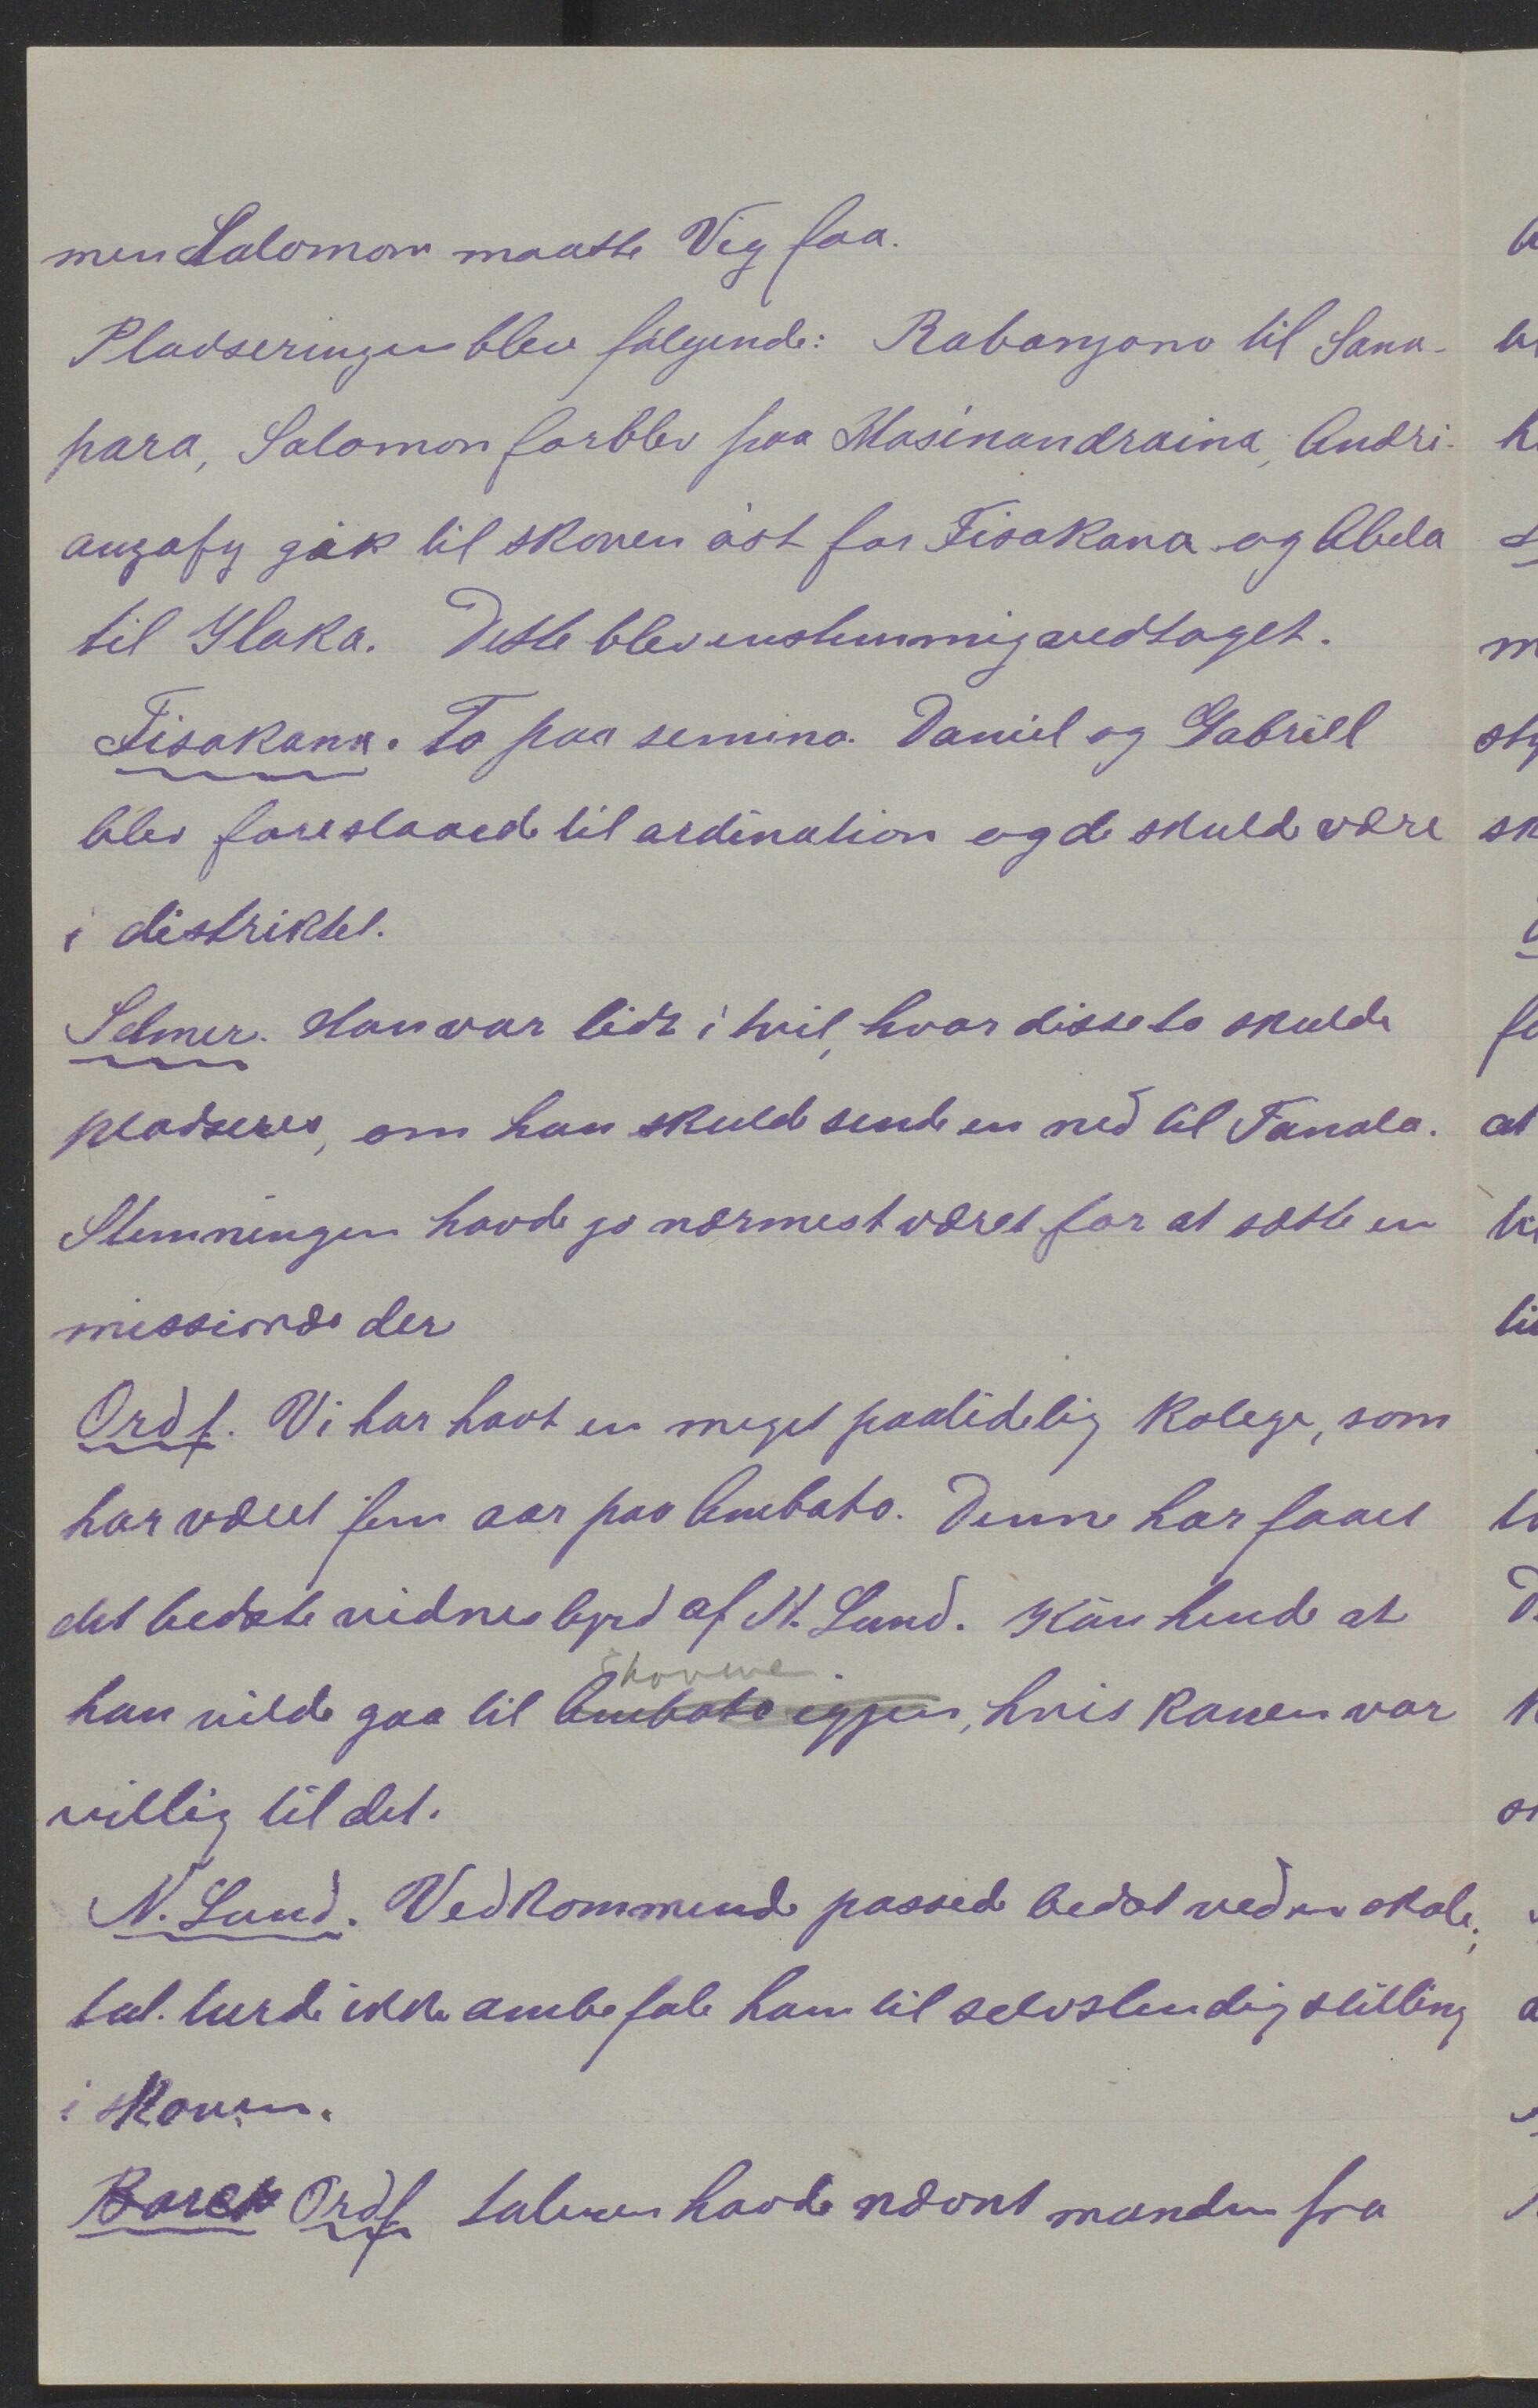 men Salomon maatte Vig faa.
Pladseringen blev følgende: Rabanjono til Sana-
para, Salomon forblev paa Masinandraina, Andri-
anzafy gik til skoven øst for Fisakana og Abela
til Ilaka. Dette blev enstemmig vedtaget.
Fisakana. To paa semina. Daniel og Gabriel
blev foreslaaede til ordination og de skulde være
i distriktet.
Selmer. Han var lidt i tvil, hvor disse to skulde
pladseres, om han skulde sende en ned til Tanala.
Stemningen havde jo nærmest været for at sætte en
missionær der
Ordf. Vi har havt en meget paalidelig kolega, som
har været fem aar paa Ambato. Denne har faaet
det bedste vidnesbyrd af N. Lund. Kan hende at
skovene
han vilde gaa til Ambato igjen, hvis konen var
villig til det.
N. Lund. Vedkommende passede bedst ved en skole;
tal. turde ikke anbefale ham til selvstendig stilling
i skoven.
Borch Ordf taleren havde nævnt manden fra